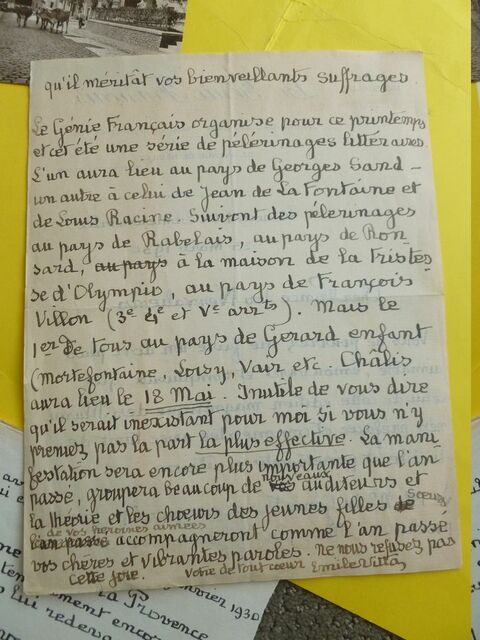 qu'il méritât vos bienveillants suffrages.
Le Génie Français organise pour ce printemps
et cet été une série de pélérinages littéraires.
L'un aura lieu au pays de Georges Sand -
un autre à celui de Jean de La Fontaine et
de Louis Racine. Suivront des pélerinages
au pays de Rabelais, au pays de Ron-
sard, au pays à la maison de la Tristes-
se d'Olympio, au pays de François
Villon (3e 4e et Ve arrts). Mais le
1er de tous au pays de Gerard enfant
(Mortefontaine, Loisy, Vair etc. Châlis
aura lieu le 18 Mai. Inutile de vous dire
qu'il serait inexistant pour moi si vous n'y
preniez pas la part la plus effective. La mani-
festation sera encore plus importante que l'an
passé, groupera beaucoup de nouveaux auditeurs et
la théorie et les chœurs des jeunes filles Sœurs
de vos héroïnes aimées
accompagneront comme l'an passé
vos chères et vibrantes paroles. Ne nous refusez pas
cette joie. Votre de tout coeur Emile
la Provence
1930